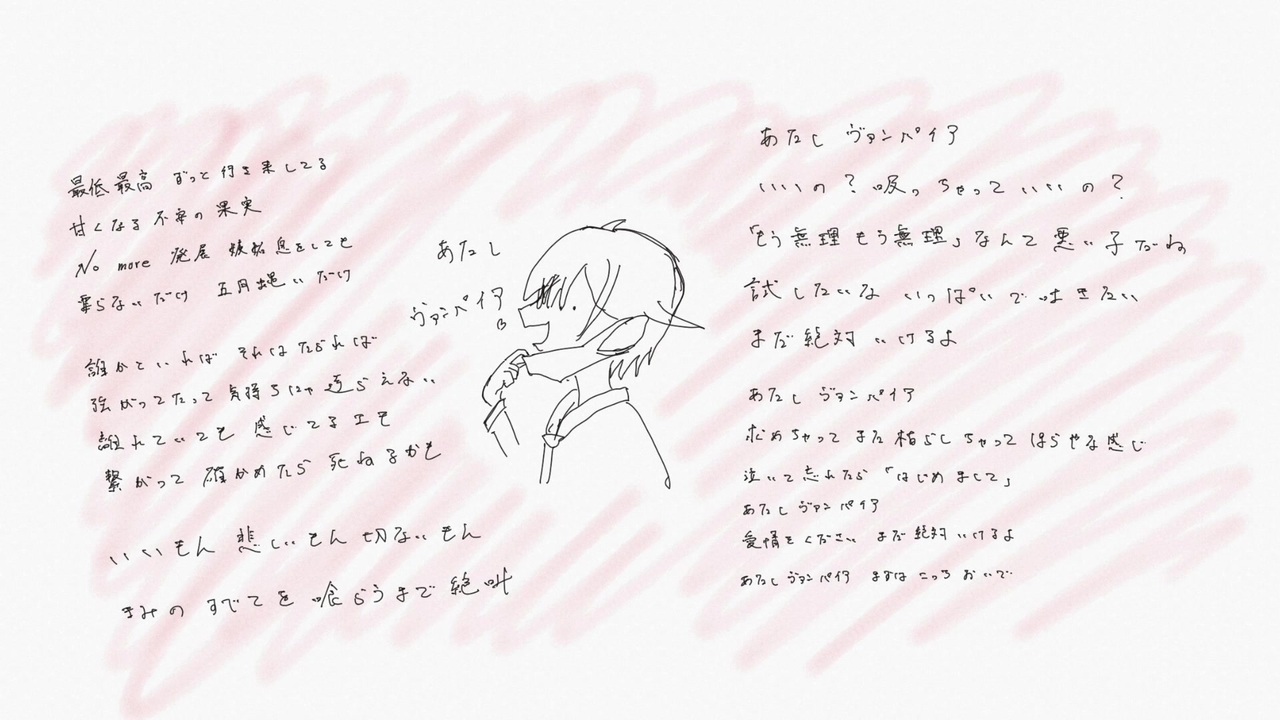 最低最高 ずっと行き来してる
甘くなる不幸の果実
No more 発展 嫉妬息をしても
実らないだけ 五月蝿いだけ
誰かといれば それはたられば
強がってたって 気持ちにゃ逆らえない
離れていても 感じてるエモ
繋がって確かめたら 死ねるかも
いいもん 悲しいもん 切ないもん
きみのすべてを喰らうまで絶叫
あたし
ヴァンパイア
あたしヴァンパイア
いいの?吸っちゃっていいの?
「もう無理もう無理」なんて悪い子だね
試したいな いっぱいで吐きたい
まだ絶対いけるよ
あたしヴァンパイア
求めちゃってまた枯らしちゃってほらやな感じ
泣いて忘れたら「はじめまして」
あたしヴァンパイア
愛情をください まだ絶対いけるよ
あたしヴァンパイア まずはこっちおいで